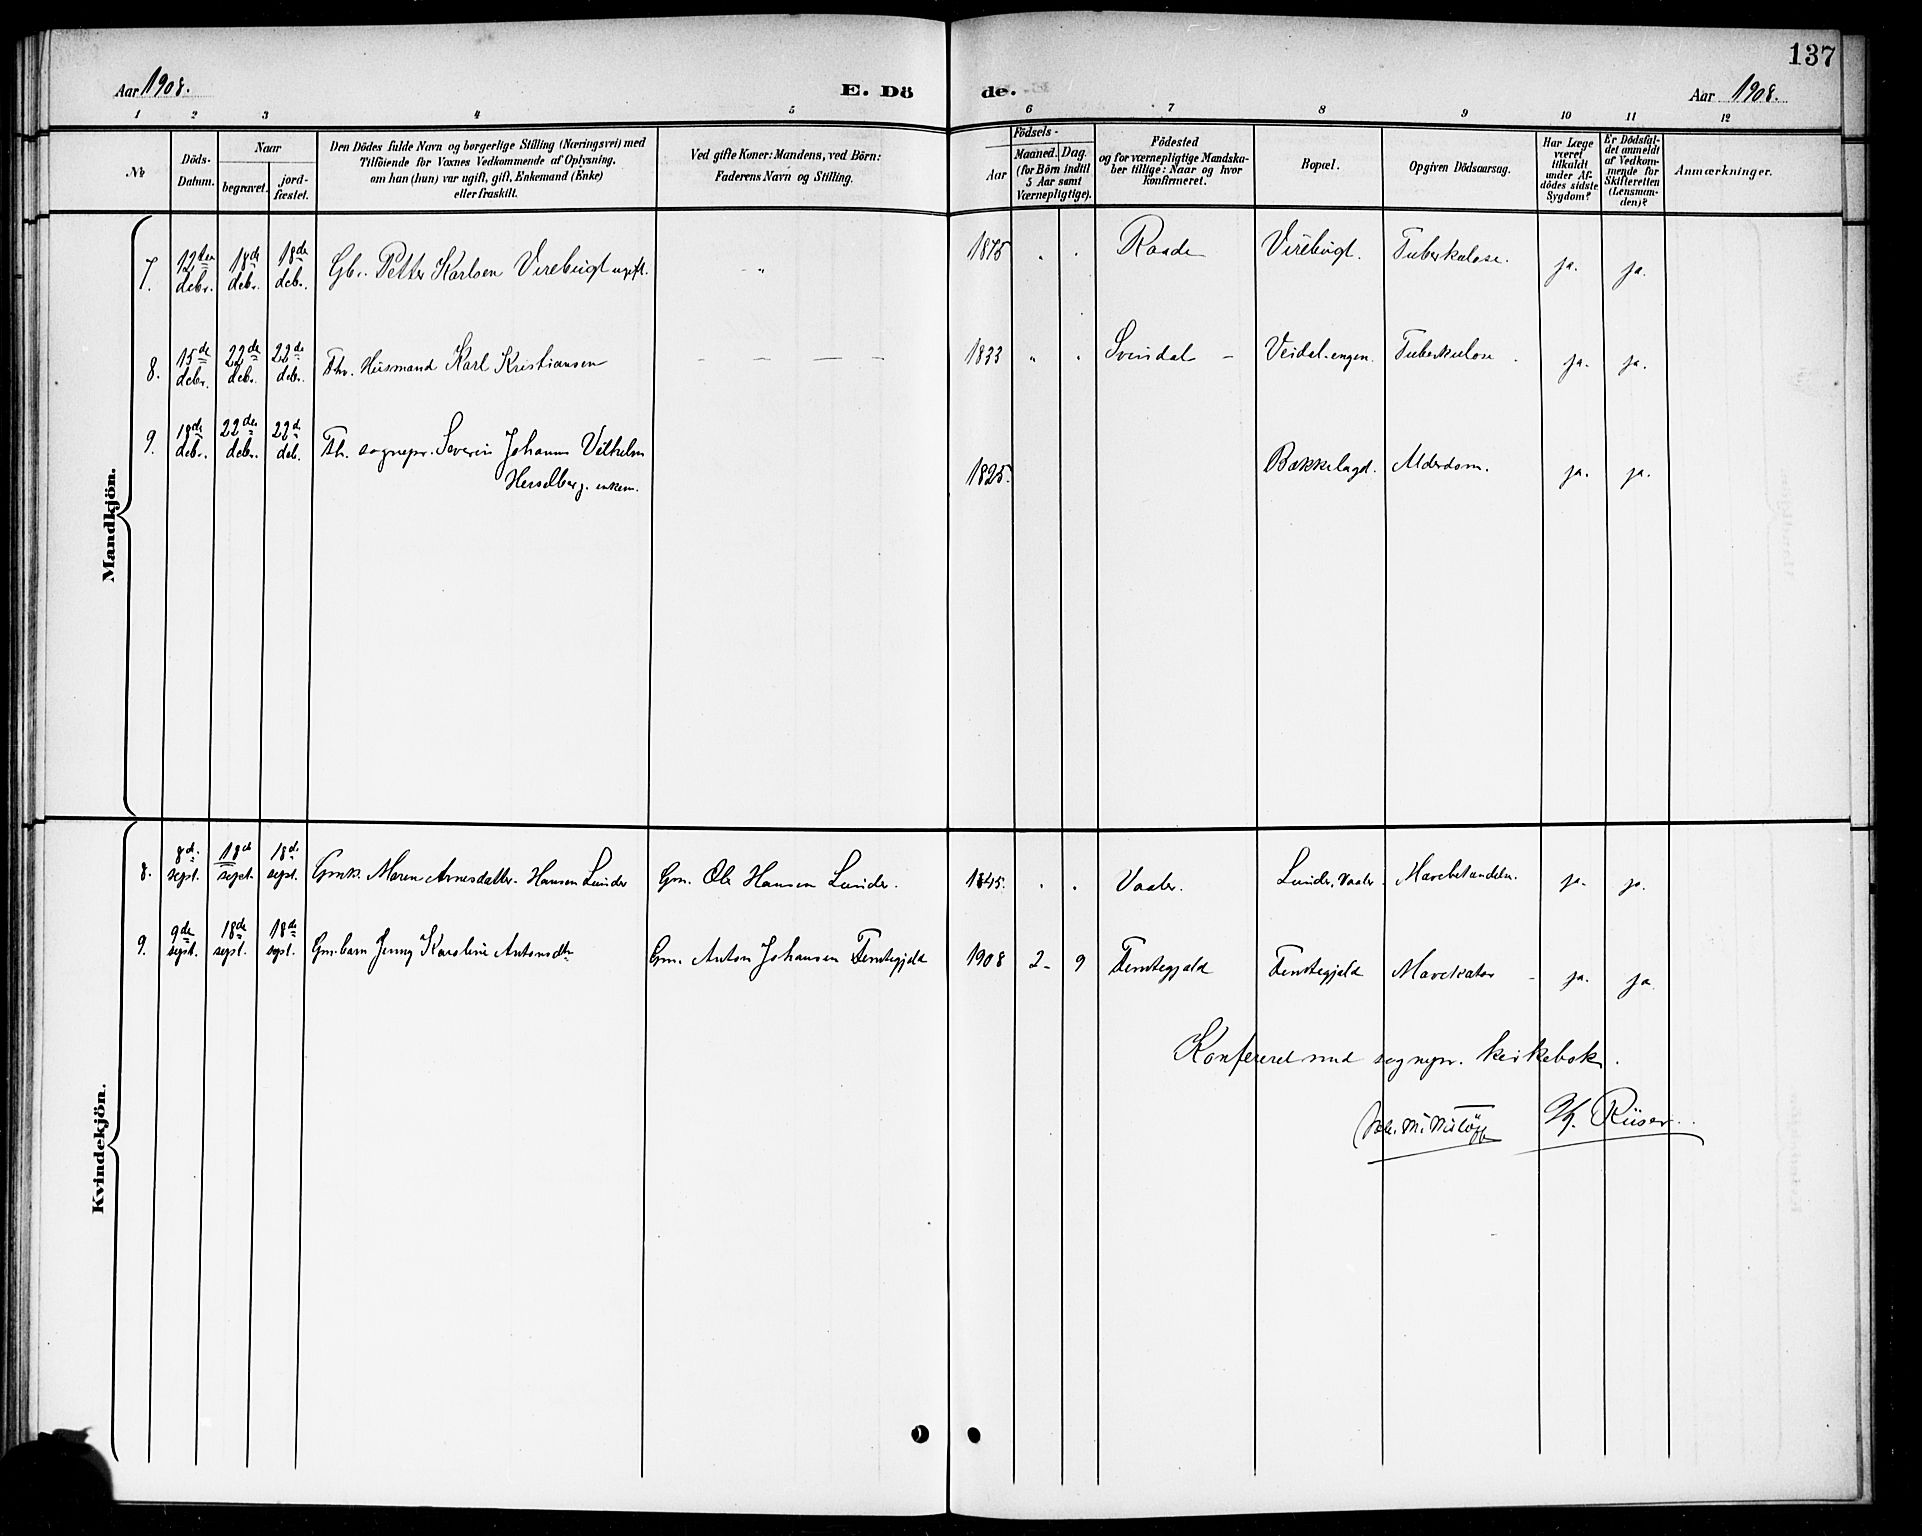 137
Aar 1908.
E. Dö
de.
Aar 1908.
1 2 3 4 5 6 7 8 9 10 11 12
No
Döds-
Datum.
Naar
begravet.
jord-
fæstet.
Den Dödes fulde Navn og borgerlige Stilling (Næringsvei) med
Tilföiende for Voxnes Vedkommende af Oplysning,
om han (hun) var ugift, gift, Enkemand (Enke)
eller fraskilt.
Ved gifte Koner: Mandens, ved Börn:
Faderens Navn og Stilling.
Födsels-
Aar
Maaned. Dag.
(for Börn indtil
5 Aar samt
Værnepligtige).
Födested
og for værnepligtige Mandska-
ber tillige: Naar og hvor
konfirmeret.
Bopæl.
Opgiven Dödsaarsag.
Har Læge
været
tilkaldt
under Af-
dödes sidste
Sygdom?
Er Dödsfal-
det anmeldt
af Vedkom-
mende for
Skifteretten
(Lensman-
den)?
Anmærkninger.
Mandkjön.
7. 12te debr. 18de debr. 18de debr. Gbr. Petter Karlsen Virebugt ugift. " 1875 " " Raade Virebugt. Tuberkulose. ja. ja.
8. 15de debr. 22de debr. 22de debr. Fhv. Husmand Karl Kristiansen — — — — 1833 " " Svindal – Veidal-engen. Tuberkulose. ja. ja.
9. 18de debr. 22de debr. 22de deb. Fh. sognepr. Severin Johannes Vilhelm
Hersselberg. enkem. 1825. Bakkelagd. Alderdom. ja. ja.
Kvindekjön.
8. 8de sept. 18de sept. 18de sept. Gmk. Maren Arnesdatter Hansen Lunder Gm. Ole Hansen Lunder. 1845. " " Vaaler. Lunder, Vaaler. ja. ja.
9. 9de sept. 18de sept. 18de sept. Gm. barn Jenny Karoline Antonsdtr Gm. Anton Johansen Femtegjeld 1908 2 – 9 Femtegjeld Femtegjeld Mavekatar – ja. ja.
Konfereret med sognepr. kirkebok.
Riiser.